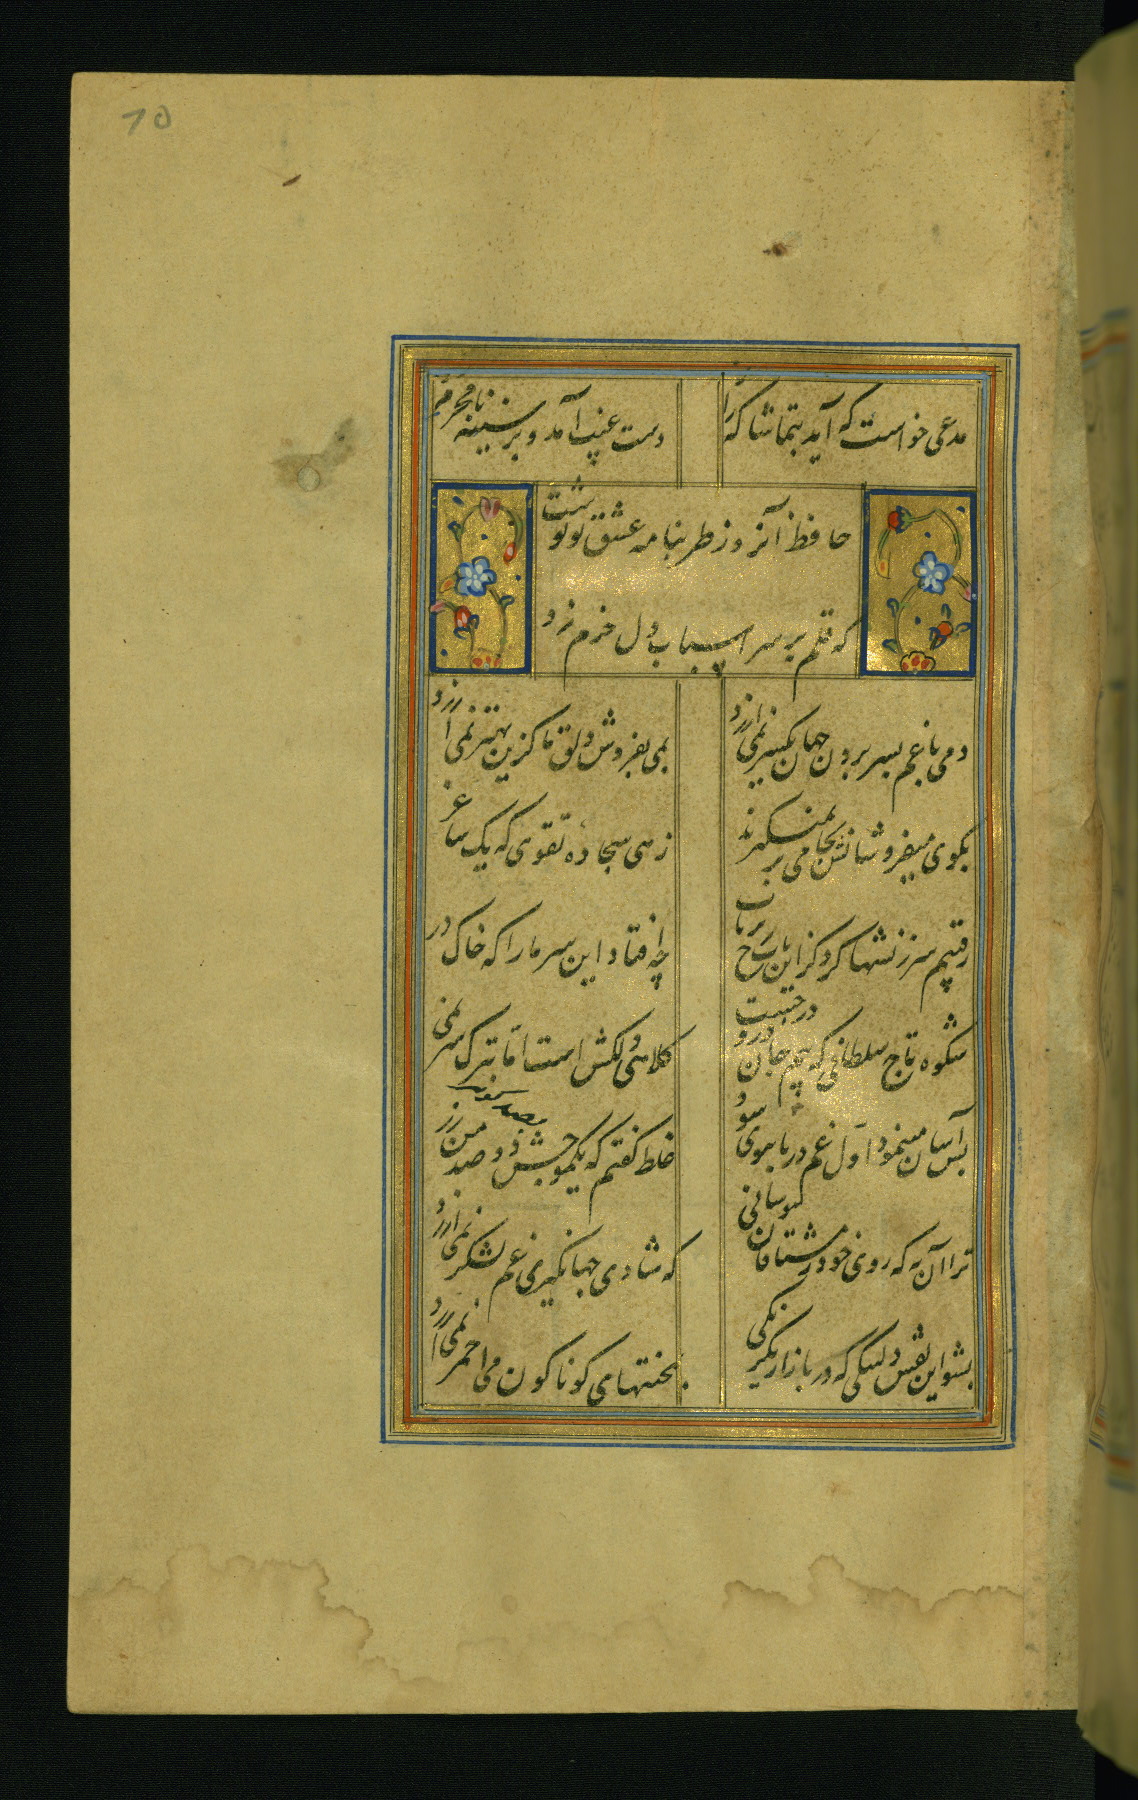 ۷۵
مدعی خواست که آید بتماشا که راز
دست غیب آمد و بر سینه نامحرم زد
حافظ آنروز طربنامه عشق تو نوشت
که قلم بر سر اسباب دل خرم زد
دمی با غم بسر بردن جهان یکسر نمی ارزد
بمی بفروش دلق ما کزین بهتر نمی ارزد
بکوی میفروشانش بجامی بر نمیگیرند
زهی سجاده تقوی که یک ساغر
رقیبم سرزنشها کرد کز این باب رخ برتاب
چه افتاد این سر ما را که خاک در
شکوه تاج سلطانی که بیم جان درو درجست
کلاهی دلکش است اما بترک سر نمی
بس آسان مینمود اول غم دریا ببوی سود
غلط گفتم که یکموجش بصد گوهر دو صد من زر
ترا آن به که روی خود ز مشتاقان بپوشانی
که شادی جهانگیری غم لشکر نمی ارزد
بشو این نقش دلتنگی که در بازار یکرنگی
بخنتهای کوناکون می احمر نمی ارزد